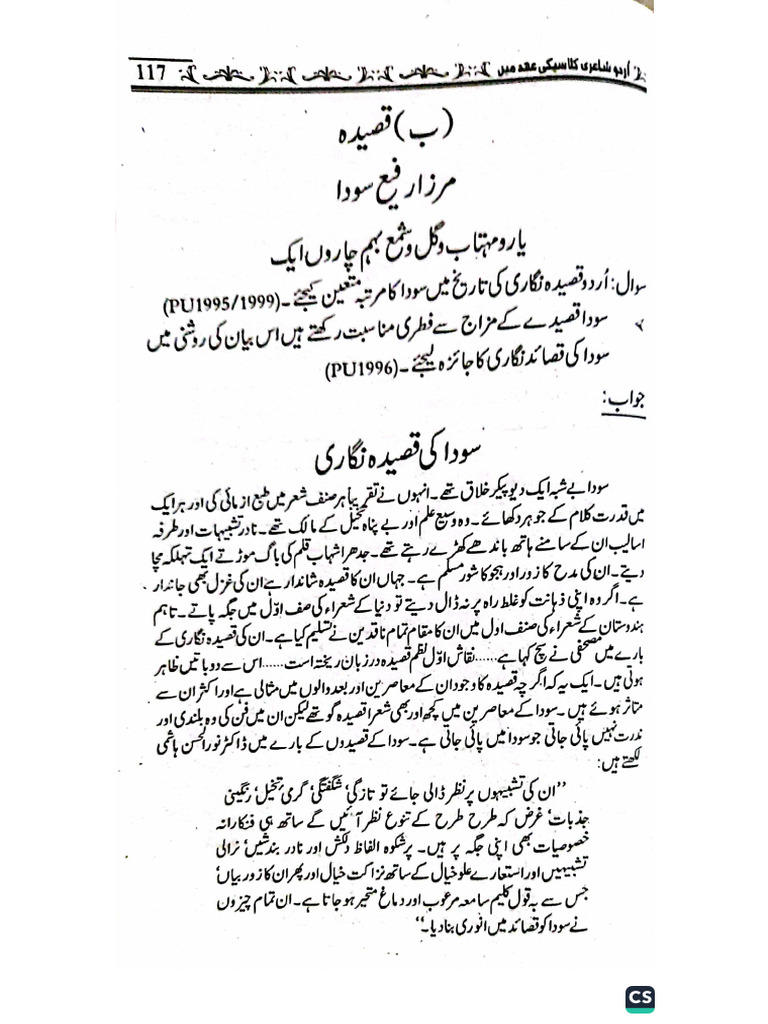 اُردو شاعری کلاسیکی عہد میں 117
(ب) قصیدہ
مرزا رفیع سودا
یار و مہتاب و گل و شمع بہم چاروں ایک
سوال: اُردو قصیدہ نگاری کی تاریخ میں سودا کا مرتبہ متعین کیجئے۔ (PU1995/1999)
سودا قصیدے کے مزاج سے فطری مناسبت رکھتے ہیں اس بیان کی روشنی میں
سودا کی قصائد نگاری کا جائزہ لیجئے۔ (PU1996)
جواب:
سودا کی قصیدہ نگاری
سودا بے شبہ ایک دیو پیکر خلاق تھے۔ انہوں نے تقریباً ہر صنف شعر میں طبع آزمائی کی اور ہر ایک
میں قدرت کلام کے جوہر دکھائے۔ وہ وسیع علم اور بے پناہ تخیل کے مالک تھے۔ نادر تشبیہات اور طرفہ
اسالیب ان کے سامنے ہاتھ باندھے کھڑے رہتے تھے۔ جدھر اشہاب قلم کی باگ موڑتے ایک تہلکہ مچا
دیتے۔ ان کی مدح کا زور اور ہجو کا شور مسلم ہے۔ جہاں ان کا قصیدہ شاندار ہے ان کی غزل بھی جاندار
ہے۔ اگر وہ اپنی ذہانت کو غلط راہ پر نہ ڈال دیتے تو دنیا کے شعراء کی صف اوّل میں جگہ پاتے۔ تاہم
ہندوستان کے شعراء کی صنف اول میں ان کا مقام تمام ناقدین نے تسلیم کیا ہے۔ ان کی قصیدہ نگاری کے
بارے میں مصحفی نے سچ کہا ہے...... نقاش اوّل نظم قصیدہ در زبان ریختہ است...... اس سے دو باتیں ظاہر
ہوتی ہیں۔ ایک یہ کہ اگر چہ قصیدہ کا وجود ان کے معاصرین اور بعد والوں میں مثالی ہے اور اکثر ان سے
متاثر ہوئے ہیں۔ سودا کے معاصرین میں کچھ اور بھی شعرا قصیدہ گو تھے لیکن ان میں فن کی وہ بلندی اور
ندرت نہیں پائی جاتی جو سودا میں پائی جاتی ہے۔ سودا کے قصیدوں کے بارے میں ڈاکٹر نور الحسن ہاشمی
لکھتے ہیں:
"ان کی تشبیہوں پر نظر ڈالی جائے تو تازگی، شگفتگی، گرمی تخیل، رنگینی
جذبات، غرض کہ طرح طرح کے تنوع نظر آئیں گے ساتھ ہی فنکارانہ
خصوصیات بھی اپنی جگہ پر ہیں۔ پرشکوہ الفاظ دلکش اور نادر بندشیں، نرالی
تشبیہیں اور استعارے علو خیال کے ساتھ نزاکت خیال اور پھر ان کا زور بیاں،
جس سے بہ قول کلیم سامعہ مرعوب اور دماغ متحیر ہو جاتا ہے۔ ان تمام چیزوں
نے سودا کو قصائد میں انوری بنا دیا۔"
CS